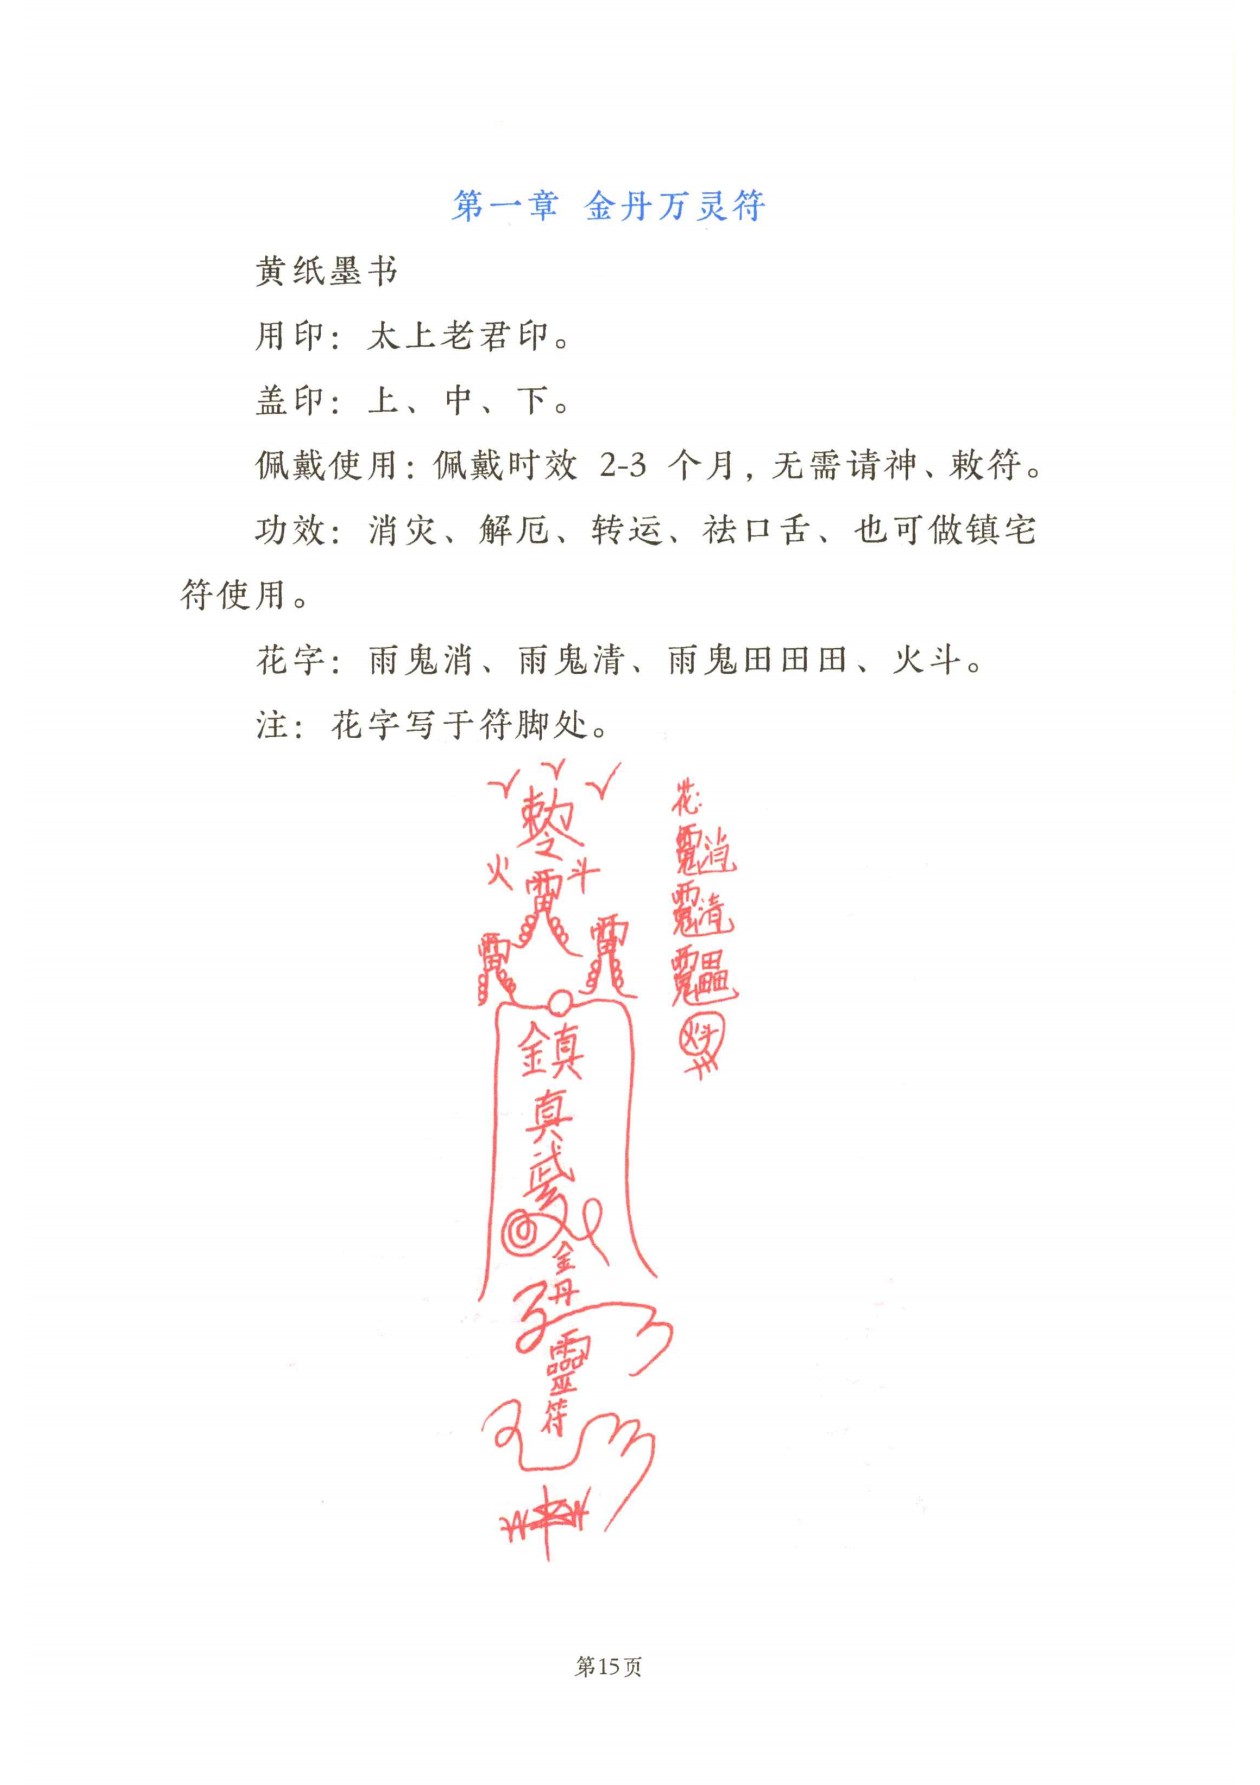 第一章 金丹万灵符
黄纸墨书
用印：太上老君印。
盖印：上、中、下。
佩戴使用：佩戴时效 2-3 个月，无需请神、敕符。
功效：消灾、解厄、转运、祛口舌、也可做镇宅
符使用。
花字：雨鬼消、雨鬼清、雨鬼田田田、火斗。
注：花字写于符脚处。
敕令
火 雷 斗
雷 雷
鎮
真
武
金
丹
靈
符
花:
雨鬼消
雨鬼清
雨鬼田田田
火斗
第15页